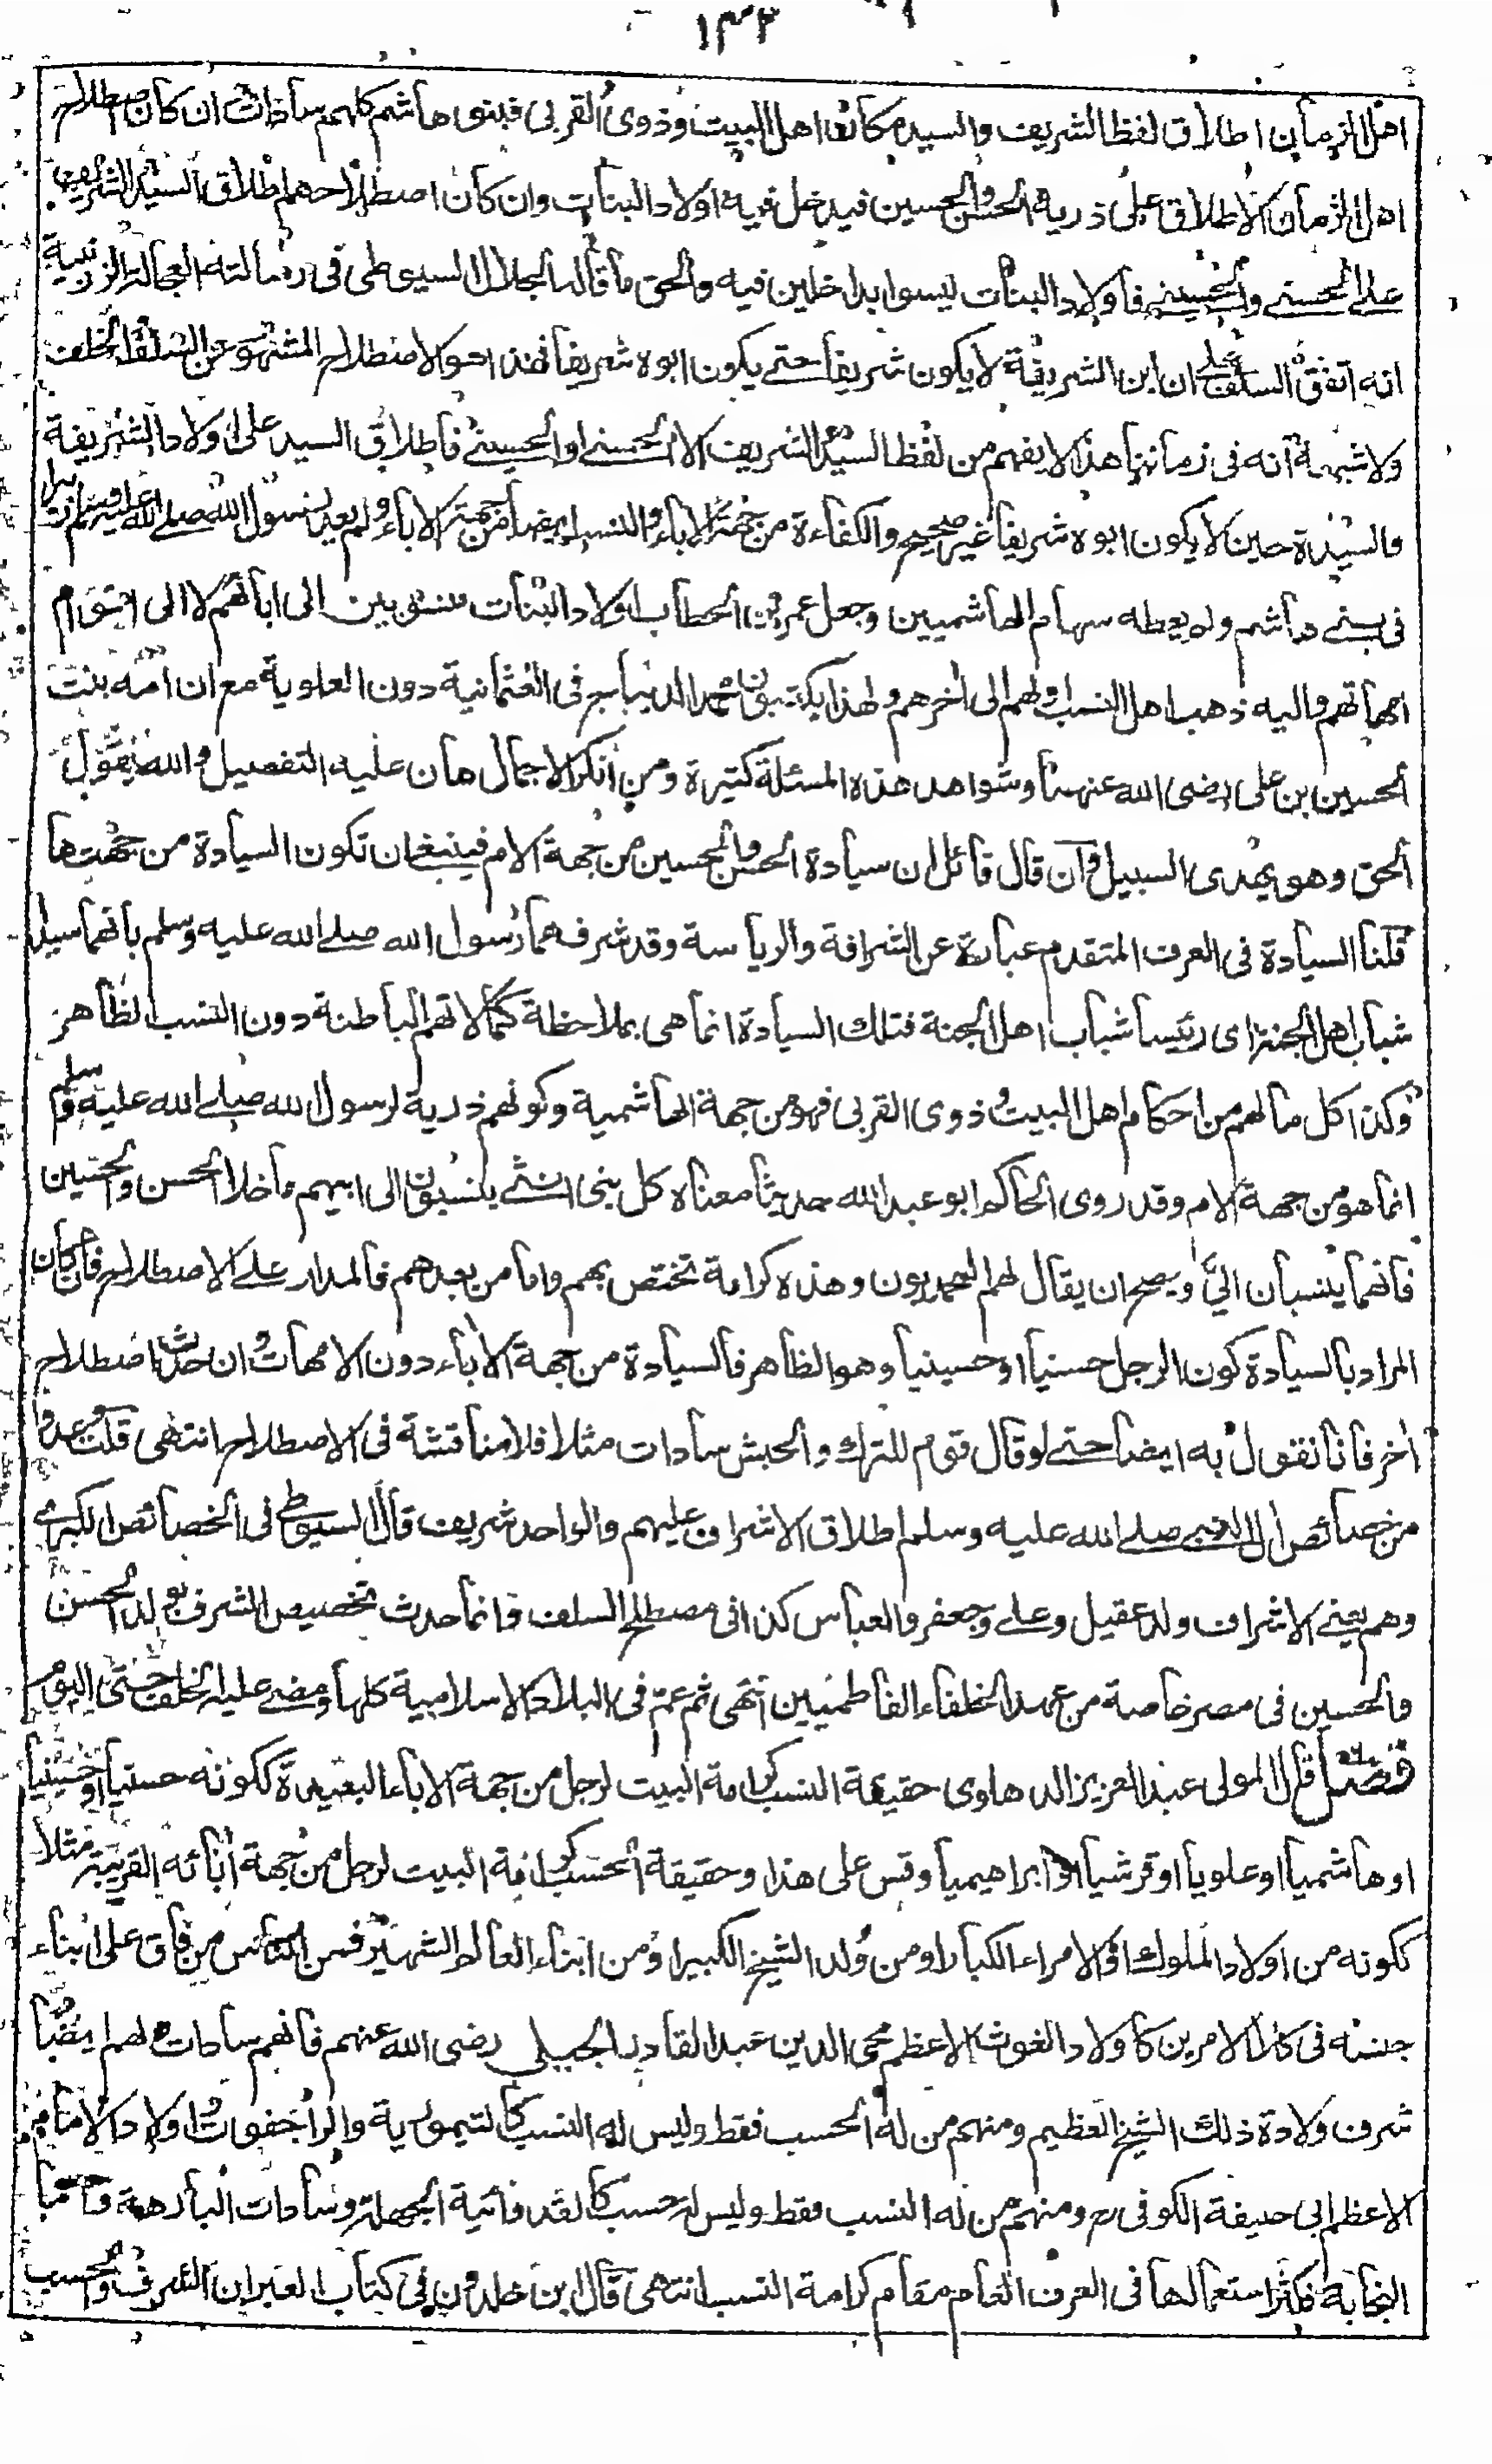 ١٣٢
اهل الزمان اطلاق لفظ الشريف والسيد مكان اهل البيت وذوى القربى فبنو هاشم كلهم سادات ان كان اصطلاح
اهل الزمان الاطلاق على ذرية الحسن والحسين فيدخل فيه اولاد البنات وان كان اصطلاحهم اطلاق السيد الشريف
على الحسنى والحسينى فاولاد البنات ليسوا بداخلين فيه والحق ما قاله الجلال السيوطى فى رسالته العجالة الزرنبية
انه اتفق السلف على ان ابن الشريفة لا يكون شريفا حتى يكون ابوه شريفا فهذا هو الاصطلاح المشهور عن السلف والخلف
ولا شبهة انه فى زماننا هذا لا يفهم من لفظ السيد الشريف الا الحسنى او الحسينى فاطلاق السيد على اولاد الشريفة
والسيدة حين لا يكون ابوه شريفا غير صحيح والكفاءة من جهة الاباء والنسب ايضا من جهة الاباء ولم يعد رسول الله صلى الله عليه وسلم
فى بنى هاشم ولم يعطه سهام الهاشميين وجعل عمر بن الخطاب اولاد البنات منسوبين الى ابائهم لا الى اقوام
امهاتهم واليه ذهب اهل النسب اولهم الى اخرهم ولهذا يكتبون محمد الديباج فى العثمانية دون العلوية مع ان امه بنت
الحسين بن على رضى الله عنهما وشواهد هذه المسئلة كثيرة ومن انكر الاجمال هان عليه التفصيل والله يقول
الحق وهو يهدى السبيل وان قال قائل ان سيادة الحسن والحسين من جهة الام فينبغى ان تكون السيادة من جهتها
قلنا السيادة فى العرف المتقدم عبارة عن الشرافة والرياسة وقد شرفهما رسول الله صلى الله عليه وسلم بانهما سيدا
شباب اهل الجنة اى رئيسا شباب اهل الجنة فتلك السيادة انما هى بملاحظة كمالاتهم الباطنة دون النسب الظاهر
وكذا كل ما لهم من احكام اهل البيت وذوى القربى فهو من جهة الهاشمية وكونهم ذرية لرسول الله صلى الله عليه وسلم
انما هو من جهة الام وقد روى الحاكم ابو عبد الله حديثا معناه كل بنى انثى ينسبون الى ابيهم ما خلا الحسن والحسين
فانهما ينسبان الى ويصح ان يقال لهم المحمديون وهذه كرامة تختص بهم واما من بعدهم فالمدار على الاصطلاح فان كان
المراد بالسيادة كون الرجل حسنيا او حسينيا وهو الظاهر فالسيادة من جهة الاباء دون الامهات وان حدث اصطلاح
اخر فانا نقول به ايضا حتى لو قال قوم للترك والحبش سادات مثلا فلا مناقشة فى الاصطلاح انتهى قلت وعدوا
من خصائص ال النبى صلى الله عليه وسلم اطلاق الاشراف عليهم والواحد شريف قال السيوطى فى الخصائص الكبرى
وهم يعنى الاشراف ولد عقيل وعلى وجعفر والعباس كذا فى مصطلح السلف وانما حدث تخصيص الشرف بولد الحسن
والحسين فى مصر خاصة من عهد الخلفاء الفاطميين انتهى ثم عم فى البلاد الاسلامية كلها ومضى عليه الخلف حتى اليوم
فصل قال المولى عبد العزيز الدهلوى حقيقة النسب كرامة البيت لرجل من جهة الاباء البعيدة ككونه حسنيا او حسينيا
او هاشميا او علويا او قرشيا او ابراهيميا وقس على هذا وحقيقة الحسب كرامة البيت لرجل من جهة ابائه القريبة مثلا
ككونه من اولاد الملوك او الامراء الكبار او من ولد الشيخ الكبير او من ابناء العالم الشهير فمن الناس من فاق على ابناء
جنسه فى كلا الامرين كاولاد الغوث الاعظم محى الدين عبد القادر الجيلى رضى الله عنهم فانهم سادات ولهم ايضا
شرف ولادة ذلك الشيخ العظيم ومنهم من له الحسب فقط وليس له النسب كالتيمورية والراخفوت واولاد الامام
الاعظم ابى حنيفة الكوفى رح ومنهم من له النسب فقط وليس له حسب كالقدفائية الجهلة وسادات البارهة واما
النجابة فكثر استعمالها فى العرف العام مقام كرامة النسب انتهى قال ابن خلدون فى كتاب العبر ان الشرف والحسب